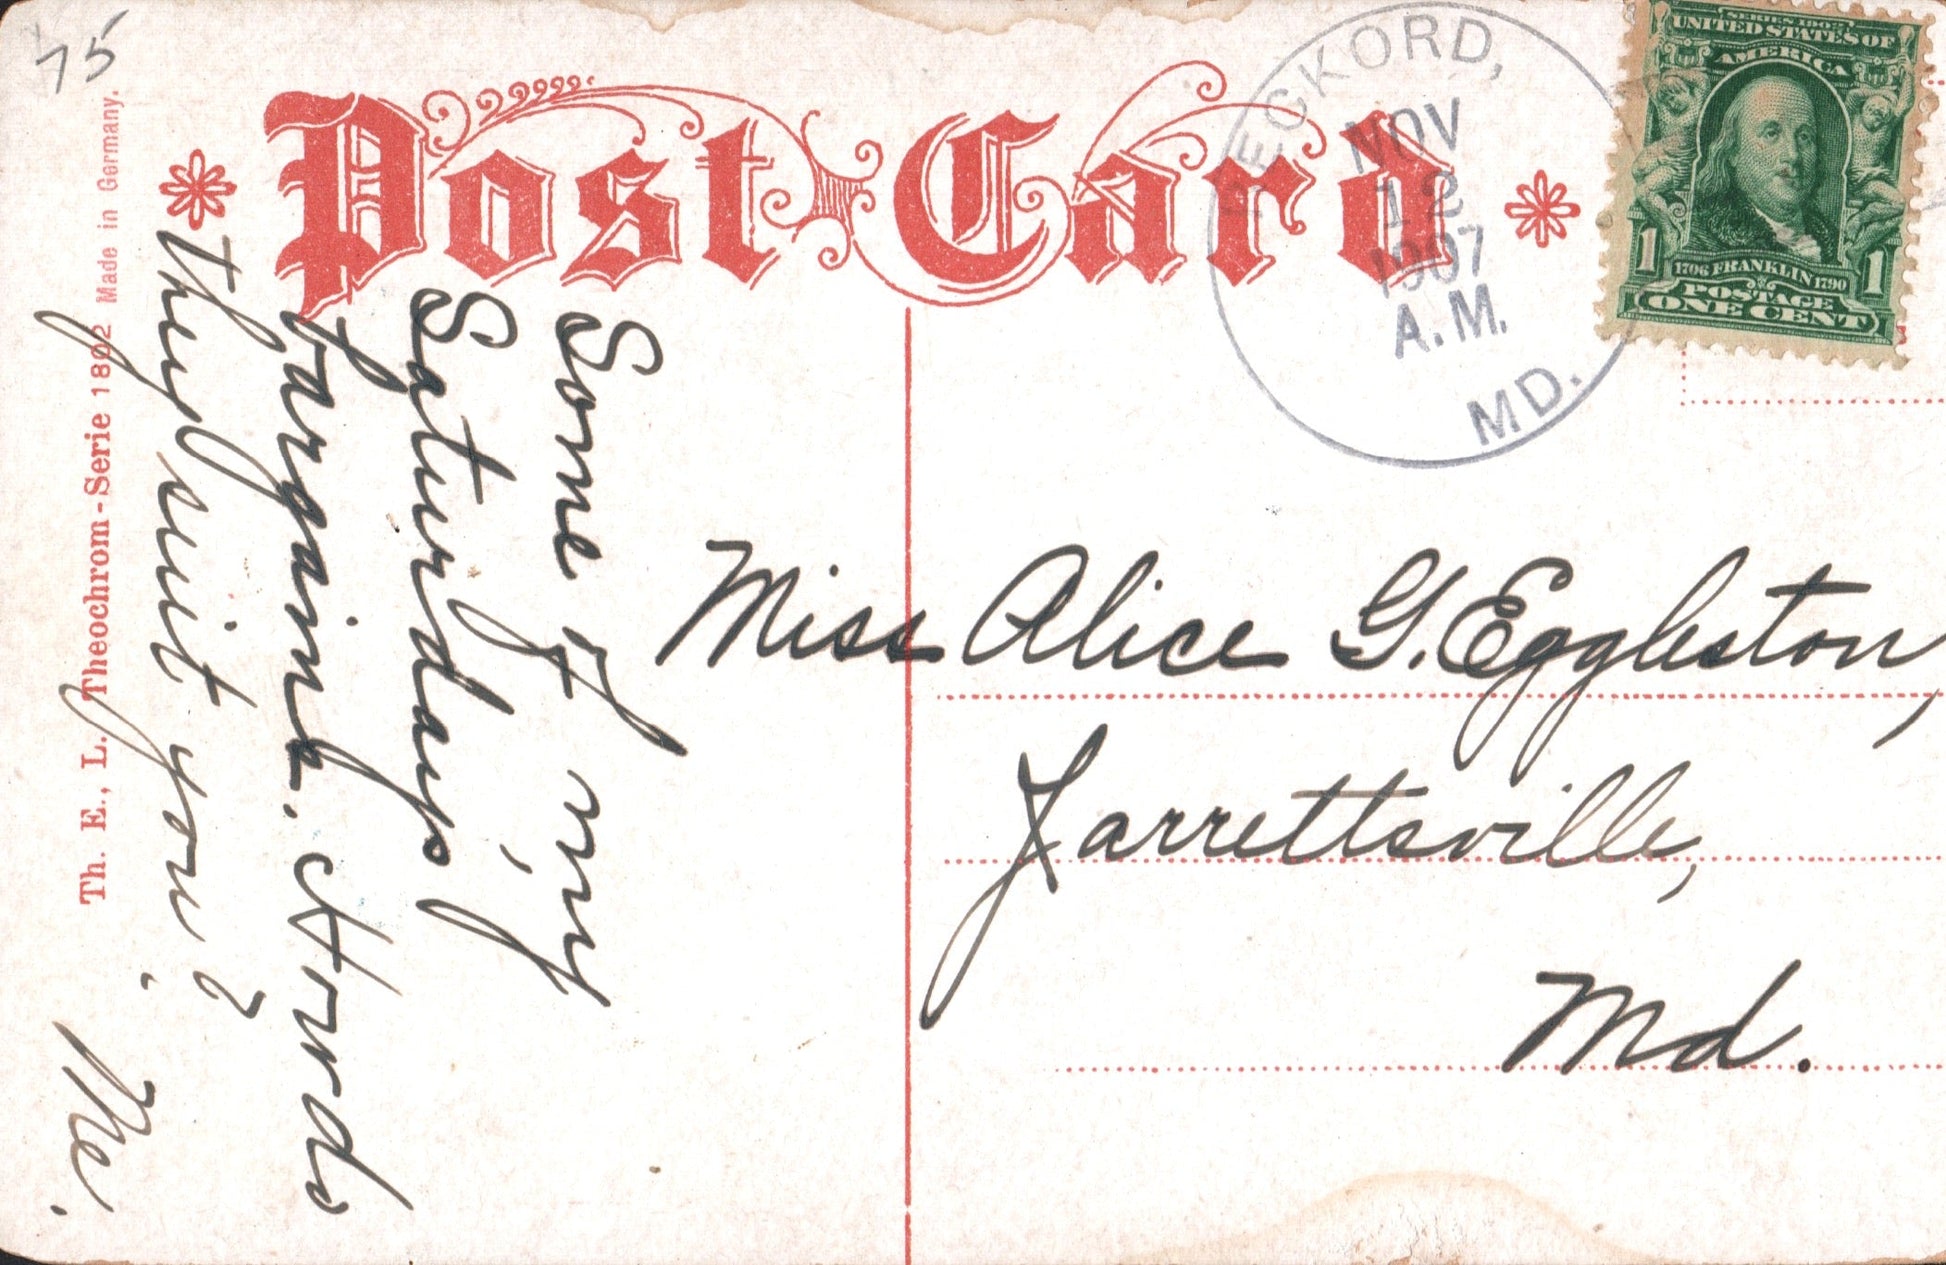 75
Post Card
NOV
12
1907
A.M.
MD.
SERIES 1902
UNITED STATES OF
AMERICA
1 1
1706 FRANKLIN 1790
POSTAGE
ONE CENT
Th. E., L. Theochrom-Serie 1802 Made in Germany.
Some of my
Saturday's
bargains. How do
they suit you?
Me.
Miss Alice G. Eggleston,
Jarrettsville,
Md.